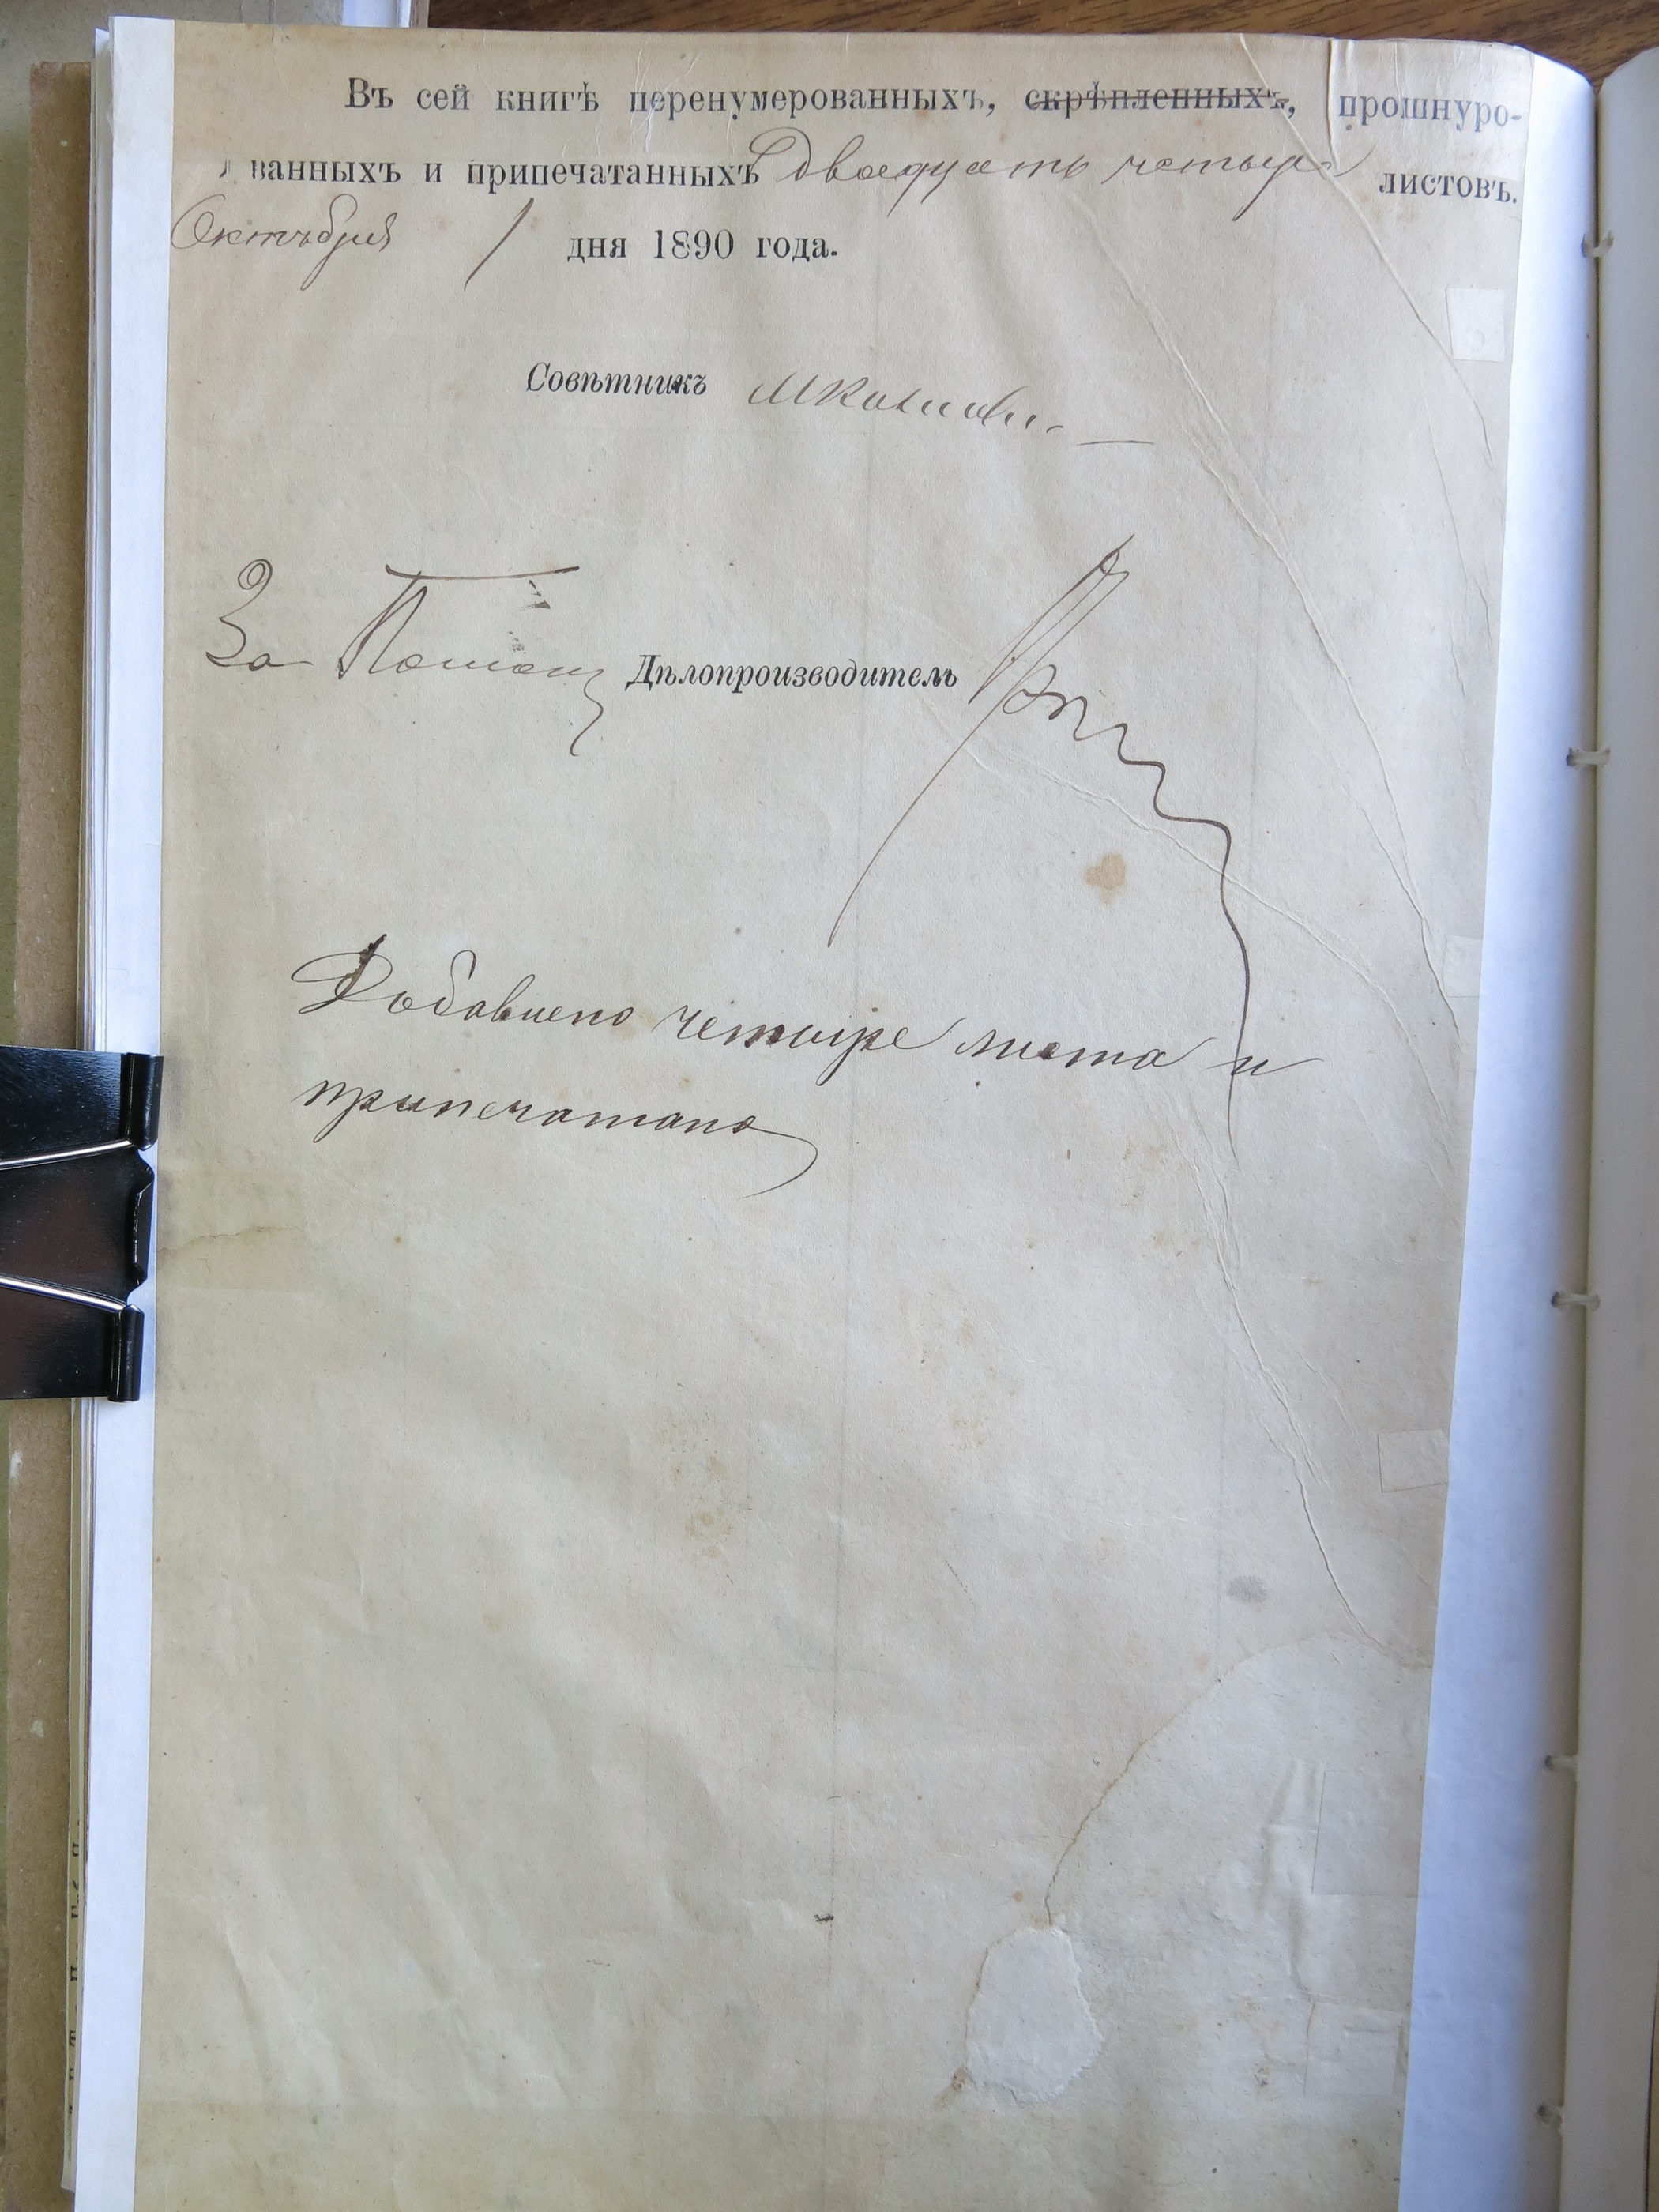 Въ сей книгѣ перенумерованныхъ, скрѣпленныхъ, прошнуро-
ванныхъ и припечатанныхъ двадцать четыре листовъ.
Октября 1 дня 1890 года.
Совѣтникъ
За Помощ Дѣлопроизводитель
Добавлено четыре листа и
припечатано